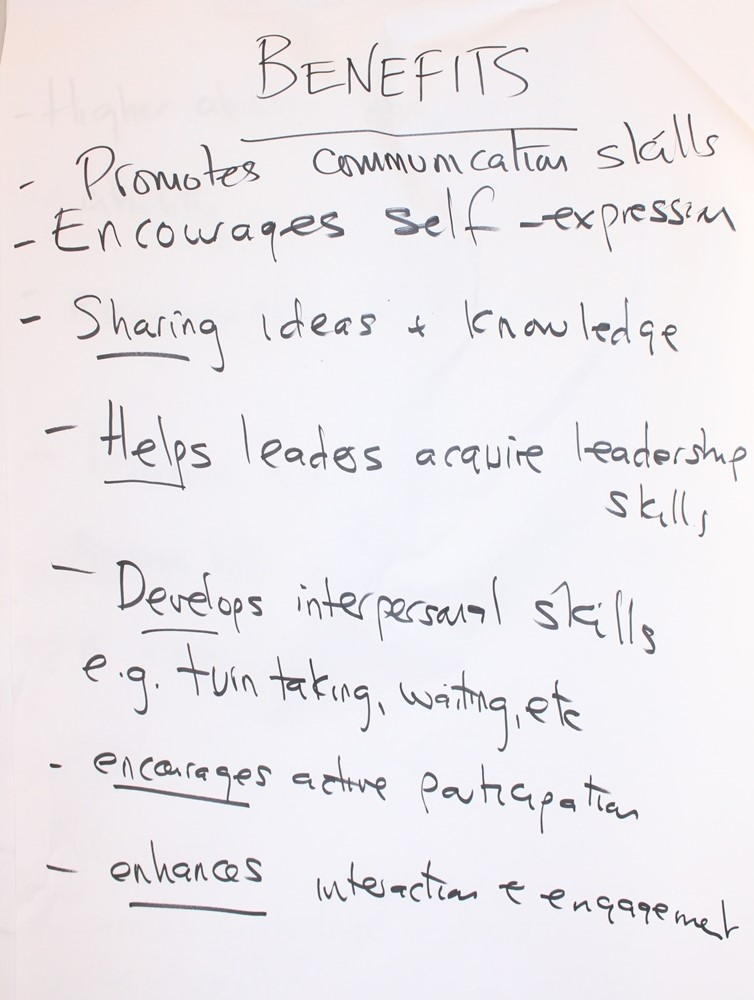 BENEFITS
- Promotes communication skills
- Encourages self-expression
- Sharing ideas + knowledge
- Helps leaders acquire leadership
skills
- Develops interpersonal skills
e.g. turn taking, waiting, etc
- encourages active participation
- enhances interaction & engagement